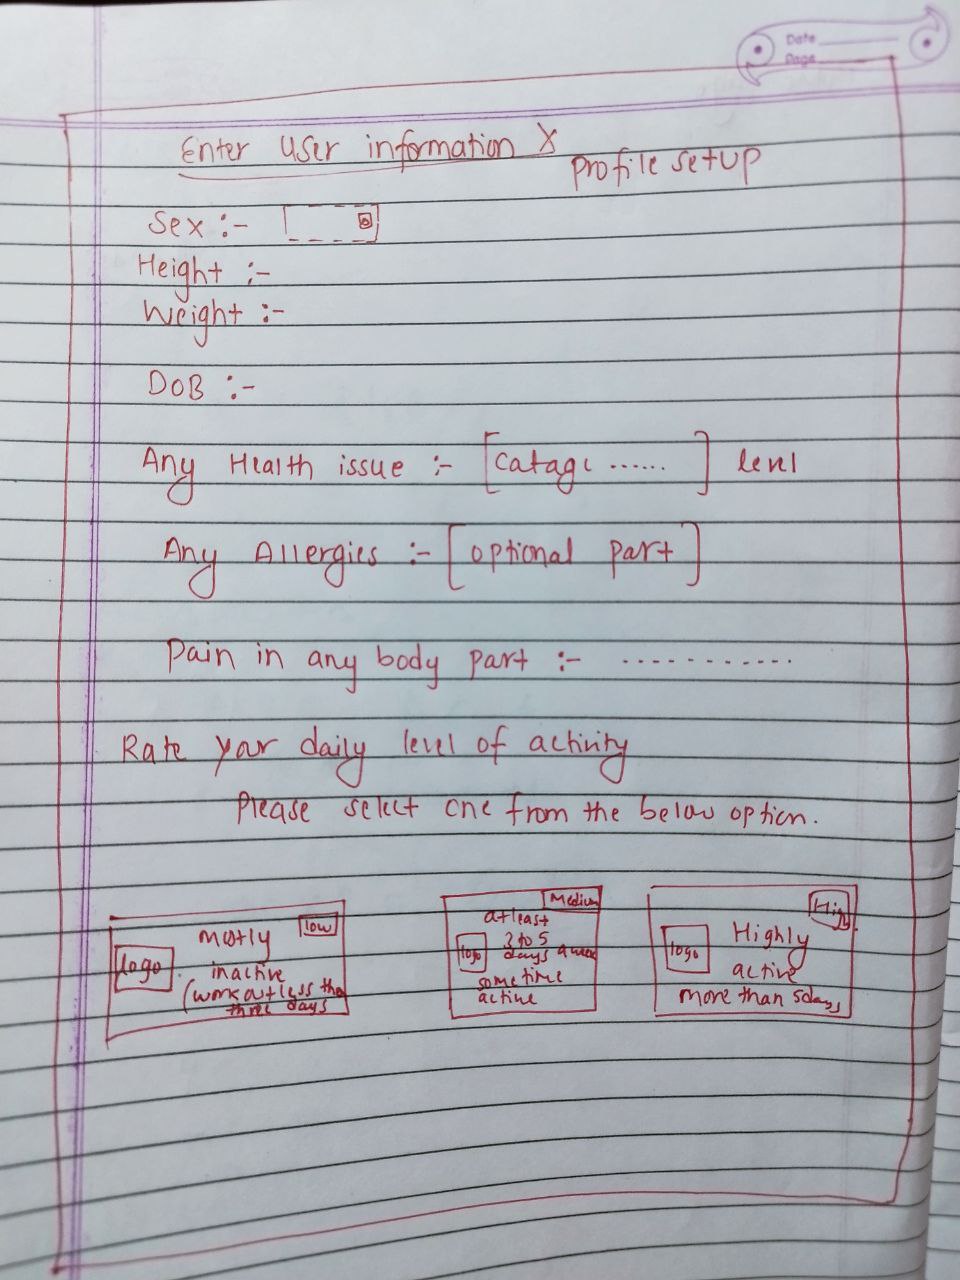 Date
Page
Enter User information X
Profile setup
Sex :-
Height :-
Weight :-
DOB :-
Any Health issue :- [catag ......] level
Any Allergies :- [optional part]
Pain in any body part :- ............
Rate your daily level of activity
Please select one from the below option.
low
mostly
logo
inactive
(workout less tha
three days
Medium
atleast
3 to 5
logo days a week
some time
active
High
Highly
logo
active
more than 5days